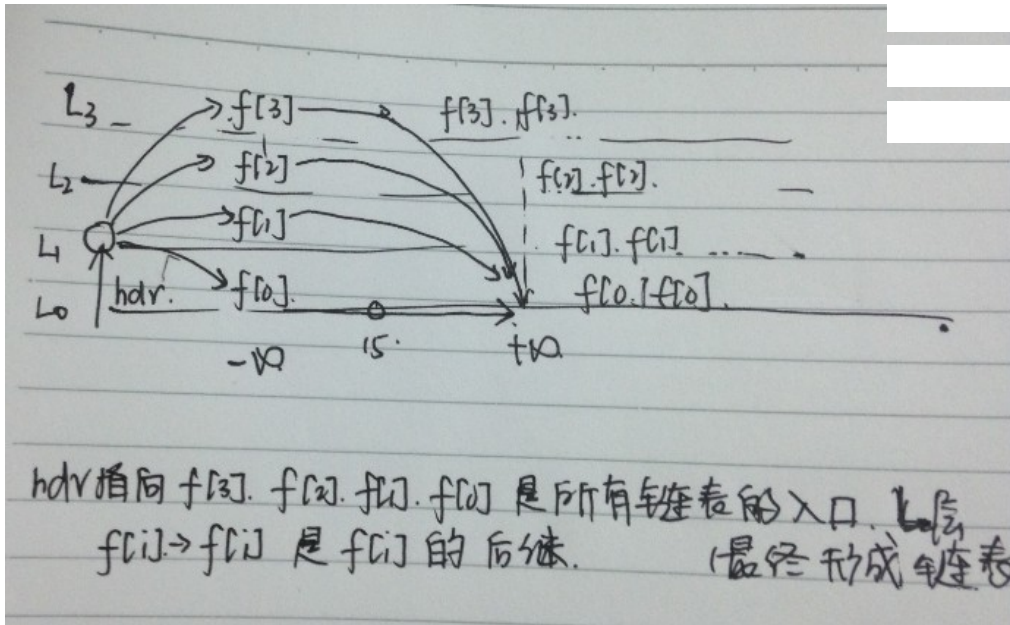 L3 f[3] f[3].f[3].
L2 f[2] f[2].f[2].
L1 f[1] f[1].f[1] ....
L0 hdr. f[0]. f[0].f[0].
-∞ 15. +∞
hdr指向 f[3]. f[2]. f[1]. f[0] 是所有链表的入口.
f[i]→f[i] 是f[i]的后继. 最终形成链表